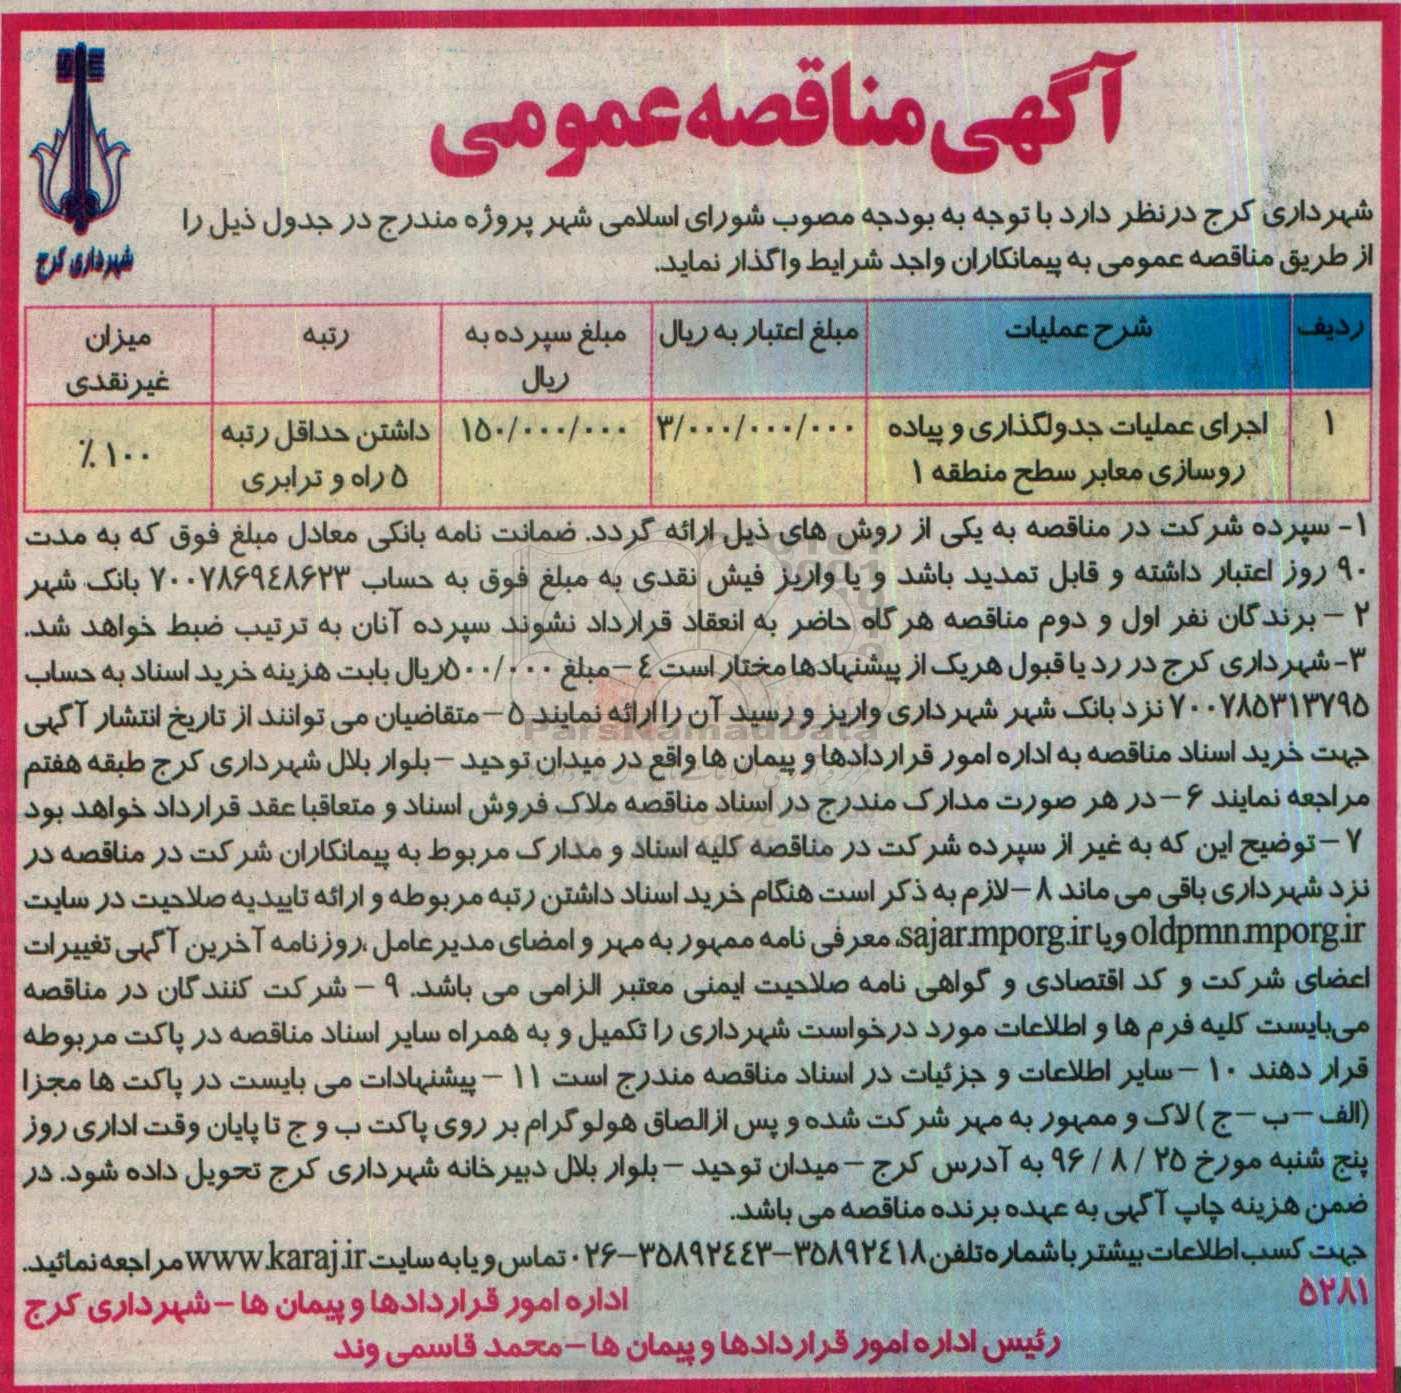 آگهی مناقصه عمومی
شهرداری کرج
شهرداری کرج درنظر دارد با توجه به بودجه مصوب شورای اسلامی شهر پروژه مندرج در جدول ذیل را
از طریق مناقصه عمومی به پیمانکاران واجد شرایط واگذار نماید.
ردیف شرح عملیات مبلغ اعتبار به ریال مبلغ سپرده به ریال رتبه میزان غیرنقدی
۱ اجرای عملیات جدولگذاری و پیاده روسازی معابر سطح منطقه ۱ ۳/۰۰۰/۰۰۰/۰۰۰ ۱۵۰/۰۰۰/۰۰۰ داشتن حداقل رتبه ۵ راه و ترابری ۱۰۰٪
۱- سپرده شرکت در مناقصه به یکی از روش های ذیل ارائه گردد. ضمانت نامه بانکی معادل مبلغ فوق که به مدت
۹۰ روز اعتبار داشته و قابل تمدید باشد و یا واریز فیش نقدی به مبلغ فوق به حساب ۷۰۰۷۸۶۹۴۸۶۲۳ بانک شهر
۲ – برندگان نفر اول و دوم مناقصه هرگاه حاضر به انعقاد قرارداد نشوند سپرده آنان به ترتیب ضبط خواهد شد.
۳- شهرداری کرج در رد یا قبول هریک از پیشنهادها مختار است ۴ – مبلغ ۵۰۰/۰۰۰ریال بابت هزینه خرید اسناد به حساب
۷۰۰۷۸۵۳۱۳۷۹۵ نزد بانک شهر شهرداری واریز و رسید آن را ارائه نمایند ۵ – متقاضیان می توانند از تاریخ انتشار آگهی
جهت خرید اسناد مناقصه به اداره امور قراردادها و پیمان ها واقع در میدان توحید – بلوار بلال شهرداری کرج طبقه هفتم
مراجعه نمایند ۶ – در هر صورت مدارک مندرج در اسناد مناقصه ملاک فروش اسناد و متعاقبا عقد قرارداد خواهد بود
۷ – توضیح این که به غیر از سپرده شرکت در مناقصه کلیه اسناد و مدارک مربوط به پیمانکاران شرکت در مناقصه در
نزد شهرداری باقی می ماند ۸ – لازم به ذکر است هنگام خرید اسناد داشتن رتبه مربوطه و ارائه تاییدیه صلاحیت در سایت
oldpmn.mporg.ir ویا sajar.mporg.ir، معرفی نامه ممهور به مهر و امضای مدیرعامل ،روزنامه آخرین آگهی تغییرات
اعضای شرکت و کد اقتصادی و گواهی نامه صلاحیت ایمنی معتبر الزامی می باشد. ۹ – شرکت کنندگان در مناقصه
می‌بایست کلیه فرم ها و اطلاعات مورد درخواست شهرداری را تکمیل و به همراه سایر اسناد مناقصه در پاکت مربوطه
قرار دهند ۱۰ – سایر اطلاعات و جزئیات در اسناد مناقصه مندرج است ۱۱ – پیشنهادات می بایست در پاکت ها مجزا
(الف – ب – ج ) لاک و ممهور به مهر شرکت شده و پس ازالصاق هولوگرام بر روی پاکت ب و ج تا پایان وقت اداری روز
پنج شنبه مورخ ۲۵ / ۸ / ۹۶ به آدرس کرج – میدان توحید – بلوار بلال دبیرخانه شهرداری کرج تحویل داده شود. در
ضمن هزینه چاپ آگهی به عهده برنده مناقصه می باشد.
جهت کسب اطلاعات بیشتر با شماره تلفن ۳۵۸۹۲۴۱۸-۳۵۸۹۲۴۴۳-۰۲۶ تماس و یا به سایت www.karaj.ir مراجعه نمائید.
۵۲۸۱
اداره امور قراردادها و پیمان ها – شهرداری کرج
رئیس اداره امور قراردادها و پیمان ها – محمد قاسمی وند
ParsNamadData